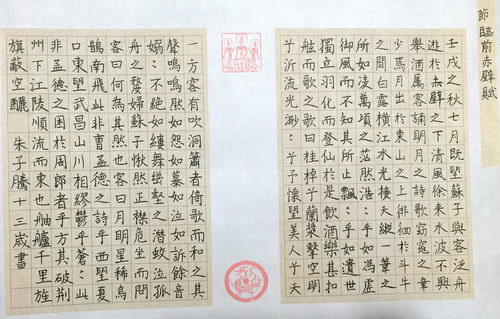 節臨前赤壁賦
壬戌之秋七月既望蘇子與客泛舟
遊於赤壁之下清風徐來水波不興
舉酒屬客誦明月之詩歌窈窕之章
少焉月出於東山之上徘徊於斗牛
之間白露橫江水光接天縱一葦之
所如凌萬頃之茫然浩〻乎如馮虛
御風而不知其所止飄〻乎如遺世
獨立羽化而登仙於是飲酒樂甚扣
舷而歌之歌曰桂棹兮蘭槳擊空明
兮泝流光渺〻兮予懷望美人兮天
一方客有吹洞簫者倚歌而和之其
聲嗚嗚然如怨如慕如泣如訴餘音
嫋〻不絕如縷舞幽壑之潛蛟泣孤
舟之嫠婦蘇子愀然正襟危坐而問
客曰何為其然也客曰月明星稀烏
鵲南飛此非曹孟德之詩乎西望夏
口東望武昌山川相繆鬱乎蒼〻此
非孟德之困於周郎者乎方其破荊
州下江陵順流而東也舳艫千里旌
旗蔽空釃 朱子騰十三歲書